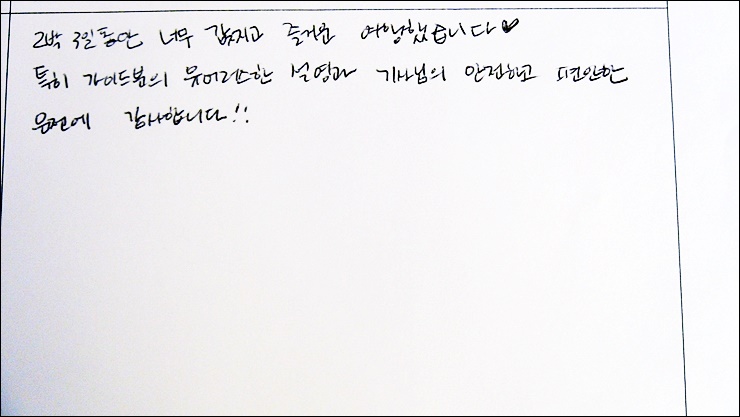 2박 3일동안 너무 값지고 즐거운 여행했습니다♥
특히 가이드분의 유머러스한 설명과 기사님의 안전하고 편안한
운전에 감사합니다!!